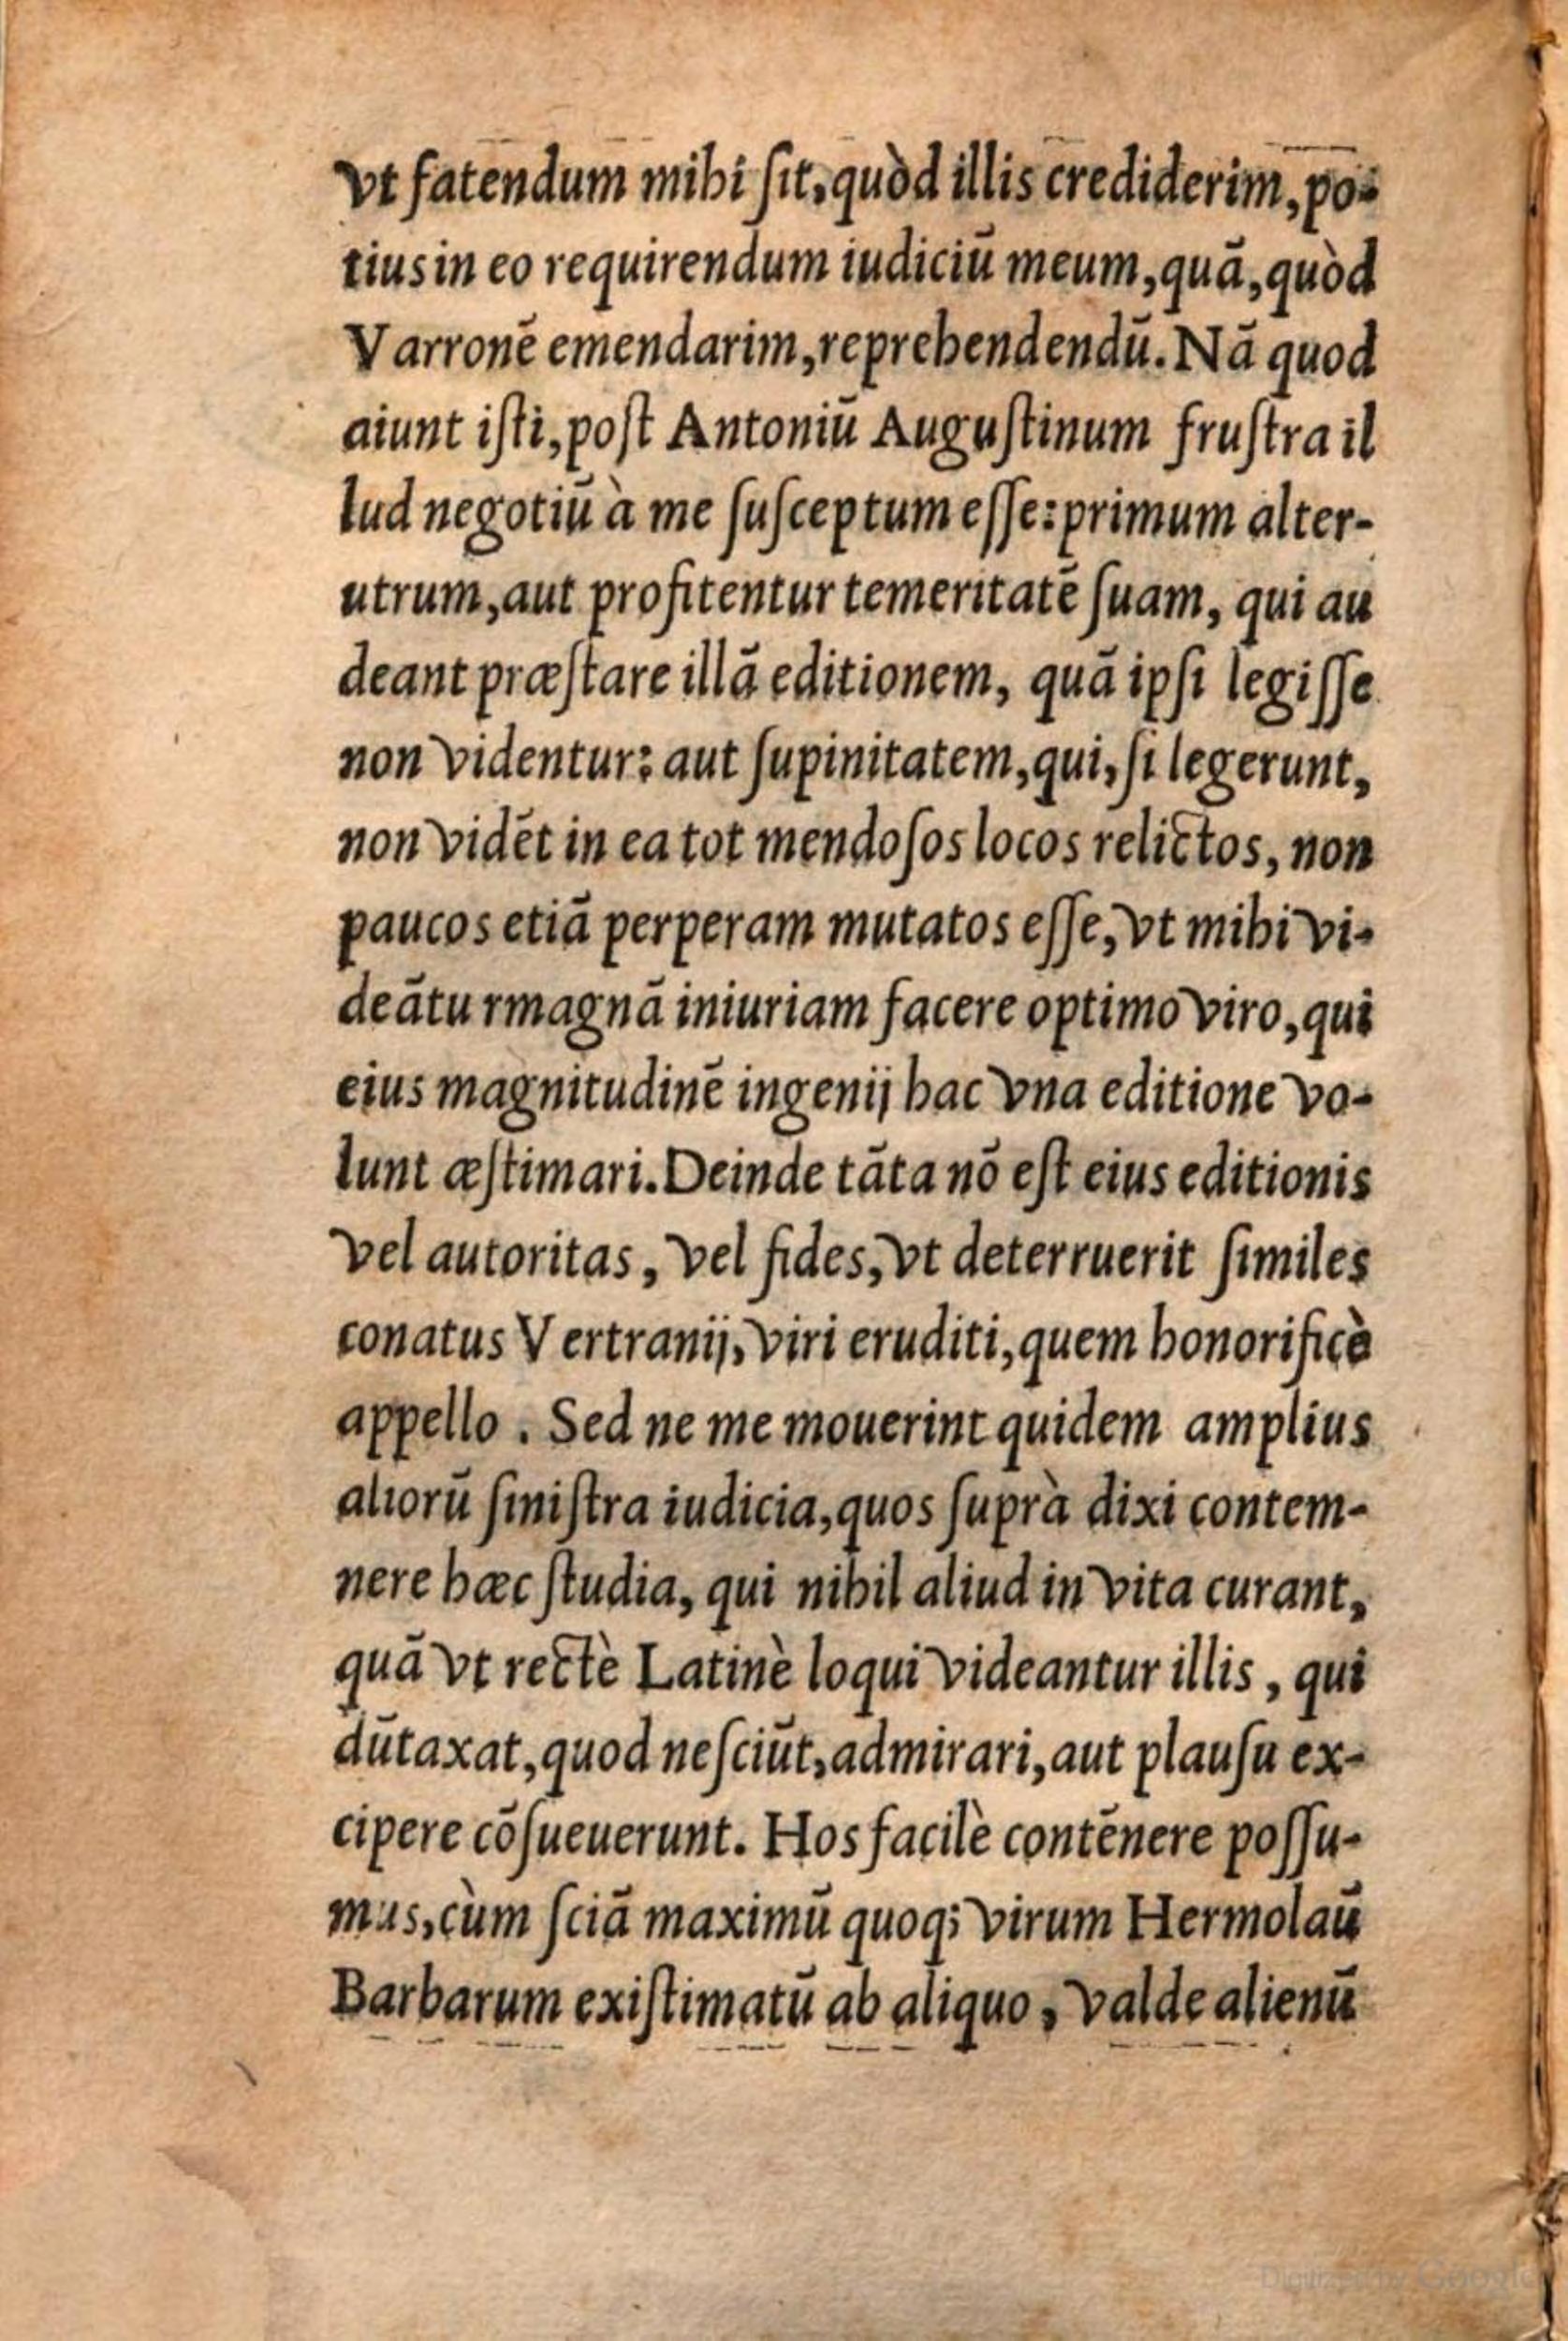 vt fatendum mihi ſit, quòd illis crediderim, po-
tius in eo requirendum iudiciū meum, quā, quòd
Varronē emendarim, reprehendendū. Nā quod
aiunt iſti, poſt Antoniū Auguſtinum fruſtra il
lud negotiū à me ſuſceptum eſſe: primum alter-
utrum, aut profitentur temeritatē ſuam, qui au
deant præſtare illā editionem, quā ipſi legiſſe
non videntur: aut ſupinitatem, qui, ſi legerunt,
non vidēt in ea tot mendoſos locos relictos, non
paucos etiā perperam mutatos eſſe, vt mihi vi-
deātu rmagnā iniuriam facere optimo viro, qui
eius magnitudinē ingenij hac vna editione vo-
lunt æſtimari. Deinde tāta nō eſt eius editionis
vel autoritas, vel fides, vt deterruerit ſimiles
conatus Vertranij, viri eruditi, quem honorificè
appello. Sed ne me mouerint quidem amplius
aliorū ſiniſtra iudicia, quos ſuprà dixi contem-
nere hæc ſtudia, qui nihil aliud in vita curant,
quā vt rectè Latinè loqui videantur illis, qui
dūtaxat, quod neſciūt, admirari, aut plauſu ex-
cipere cōſueuerunt. Hos facilè contēnere poſſu-
mus, cùm ſciā maximū quoq; virum Hermolaū
Barbarum exiſtimatū ab aliquo, valde alienū
Digitized by Google